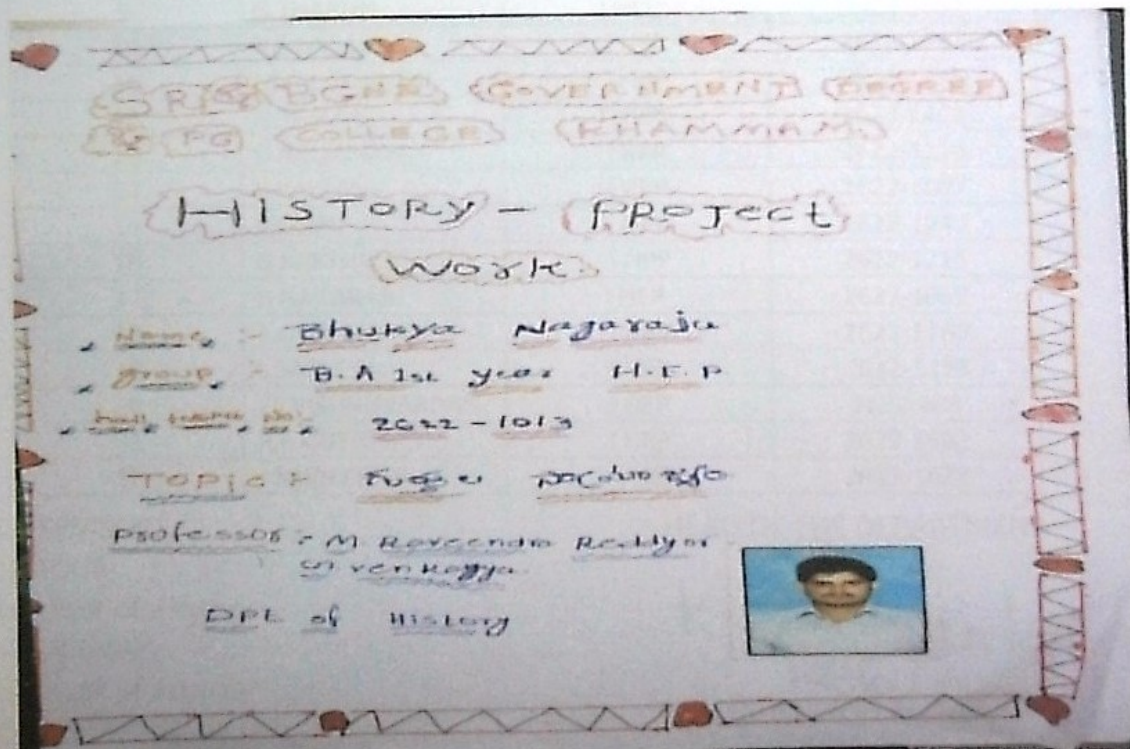 SRI & BGNR GOVERNMENT DEGREE
& PG COLLEGE KHAMMAM.
HISTORY - PROJECT
Work.
Name :- Bhukya Nagaraju
group :- B.A 1st year H.E.P
Hall ticket no :- 2022-1013
Topic :- గుప్తుల సామ్రాజ్యం
Professor :- M Raveendra Reddy
venkayya
DPt of History